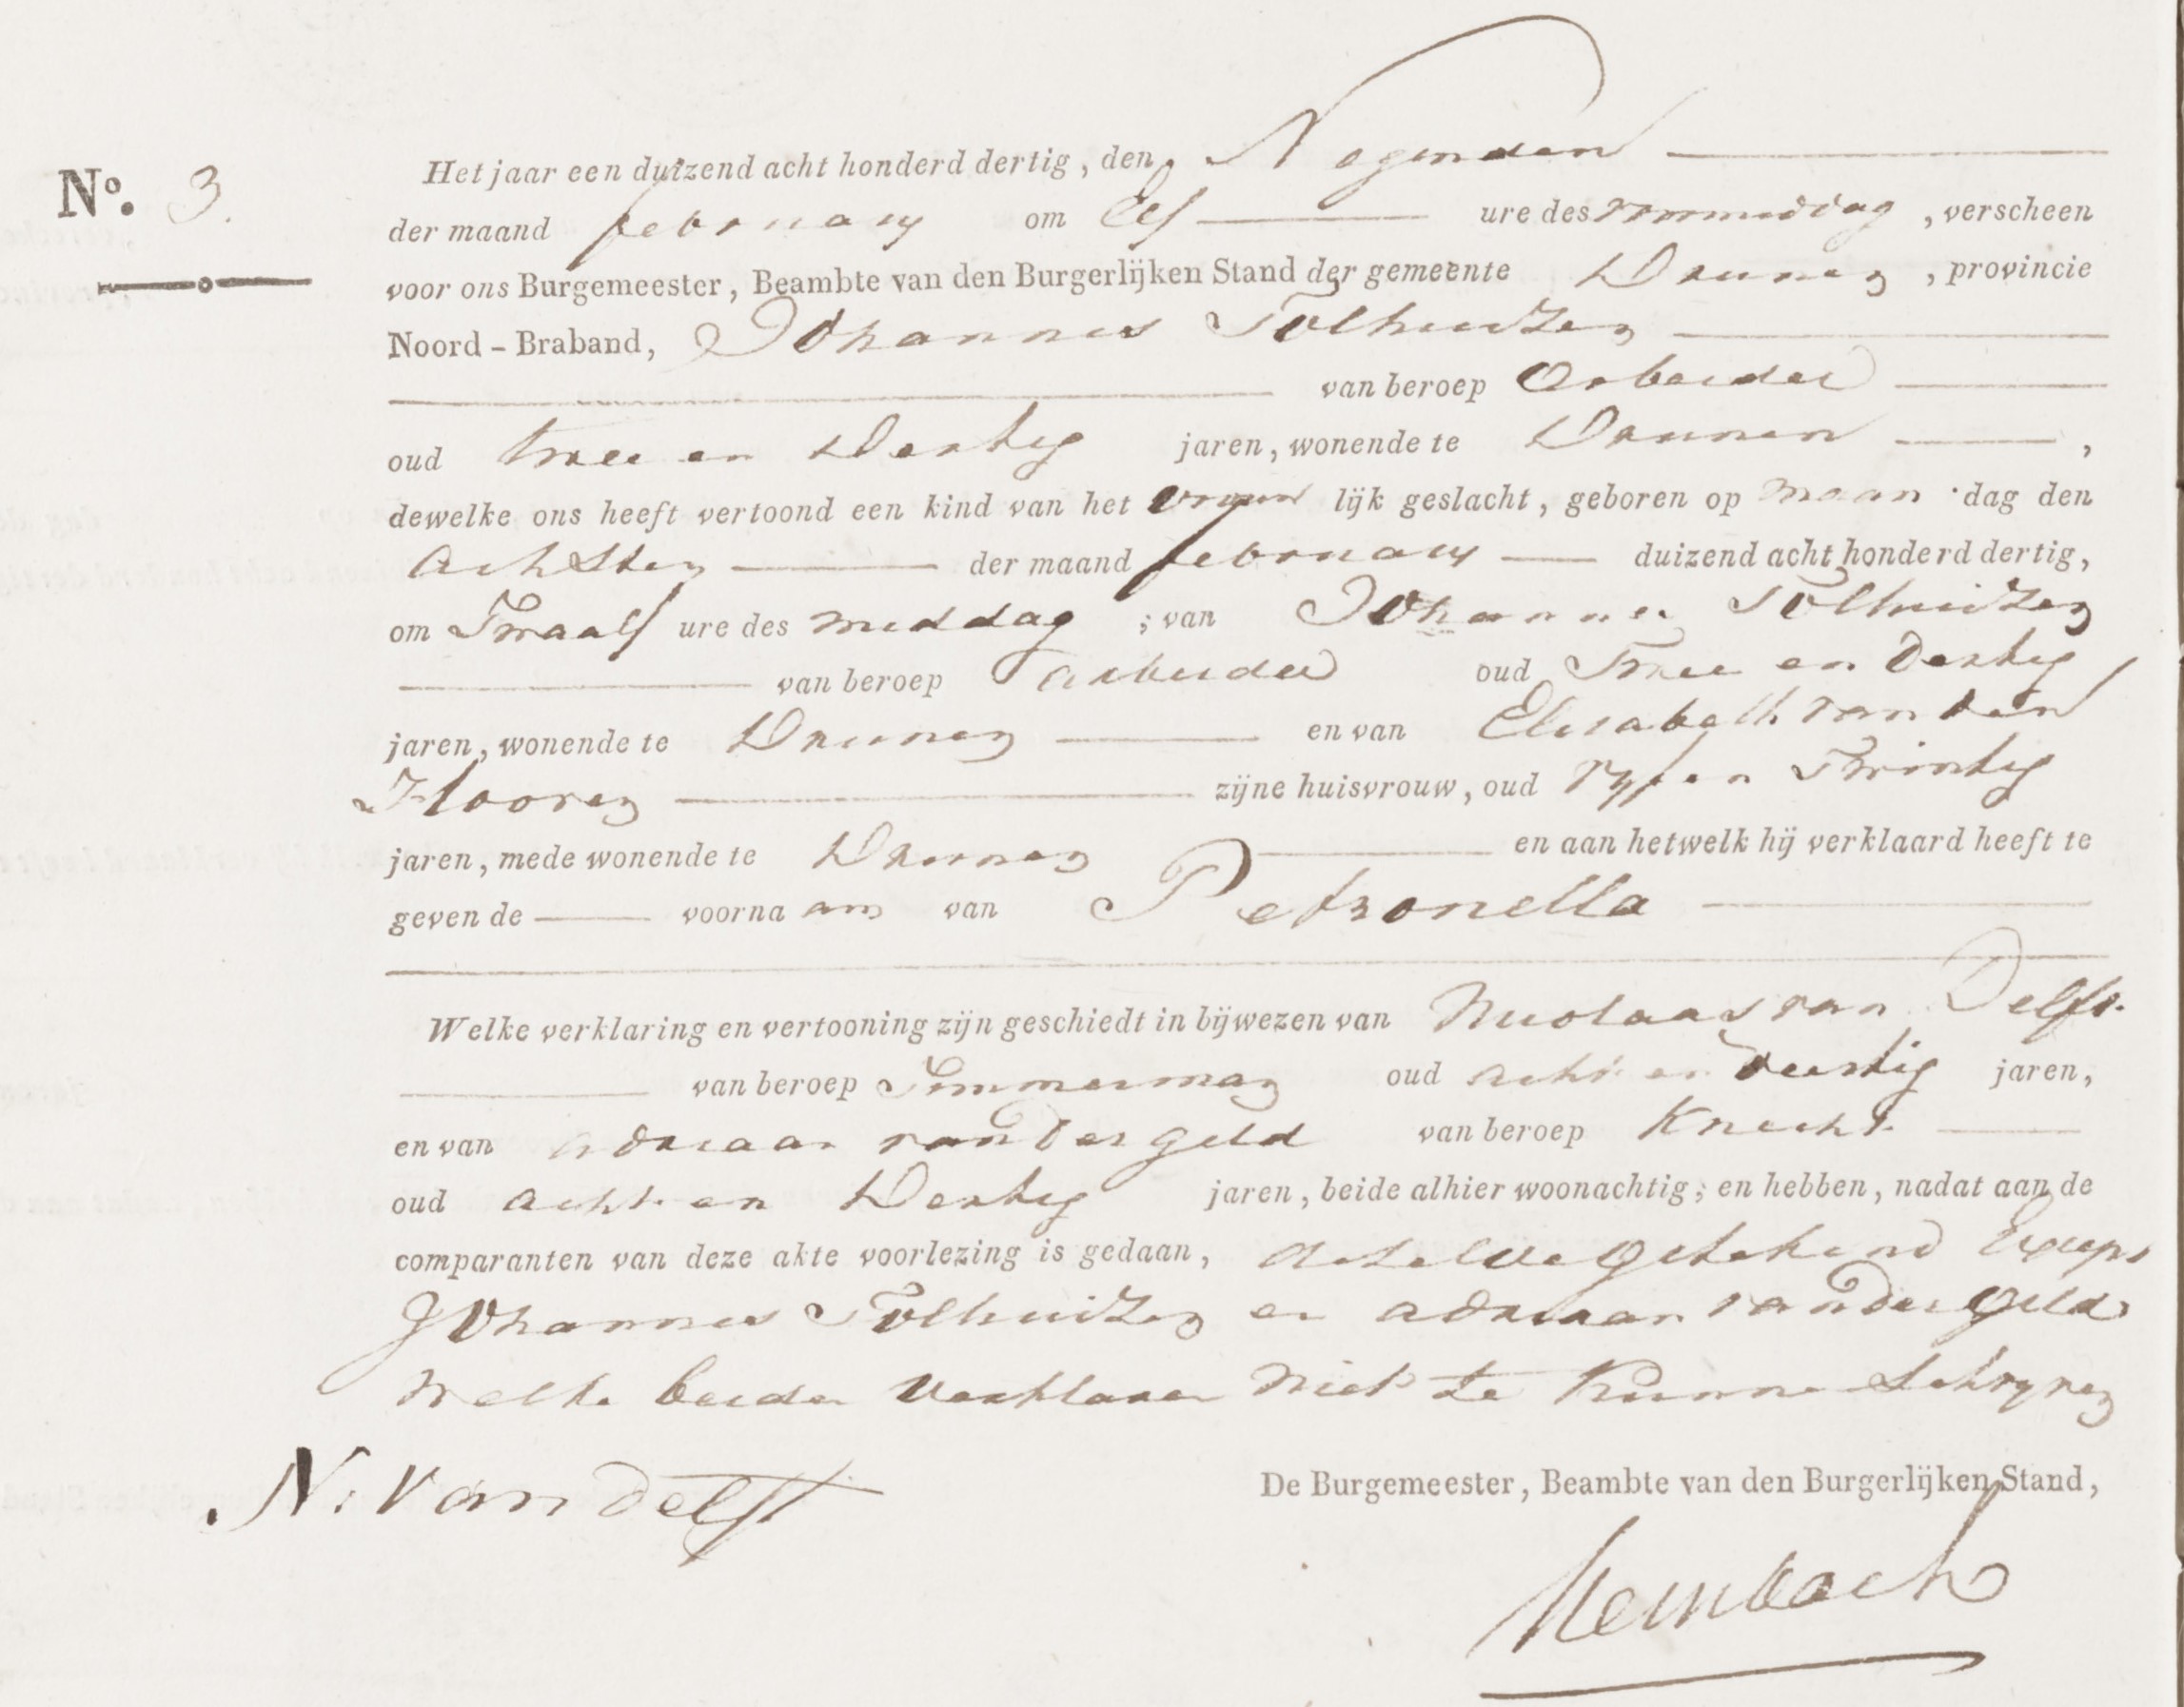 Nº. 3.
Het jaar een duizend acht honderd dertig, den Negenden
der maand february om Elf ure des voormiddag, verscheen
voor ons Burgemeester, Beambte van den Burgerlijken Stand der gemeente Drunen, provincie
Noord-Braband, Johannes Tolhuizen
van beroep Arbeider
oud twee en Dertig jaren, wonende te Drunen,
dewelke ons heeft vertoond een kind van het vrouwlijk geslacht, geboren op maandag den
Achtsten der maand february duizend acht honderd dertig,
om Twaalf ure des middag; van Johannes Tolhuizen
van beroep arbeider oud Twee en Dertig
jaren, wonende te Drunen en van Elisabeth van den
Hooren zijne huisvrouw, oud Vyf en Twintig
jaren, mede wonende te Drunen en aan hetwelk hij verklaard heeft te
geven de voornaam van Petronella
Welke verklaring en vertooning zijn geschiedt in bijwezen van Nicolaas van Delft
van beroep Timmerman oud acht en veertig jaren,
en van adriaan van der geld van beroep Knecht
oud acht en Dertig jaren, beide alhier woonachtig; en hebben, nadat aan de
comparanten van deze akte voorlezing is gedaan, dezelve getekend Except
Johannes Tolhuizen en adriaan van der geld
welke beiden verklaren niet te kunnen schryven
N. van delft
De Burgemeester, Beambte van den Burgerlijken Stand,